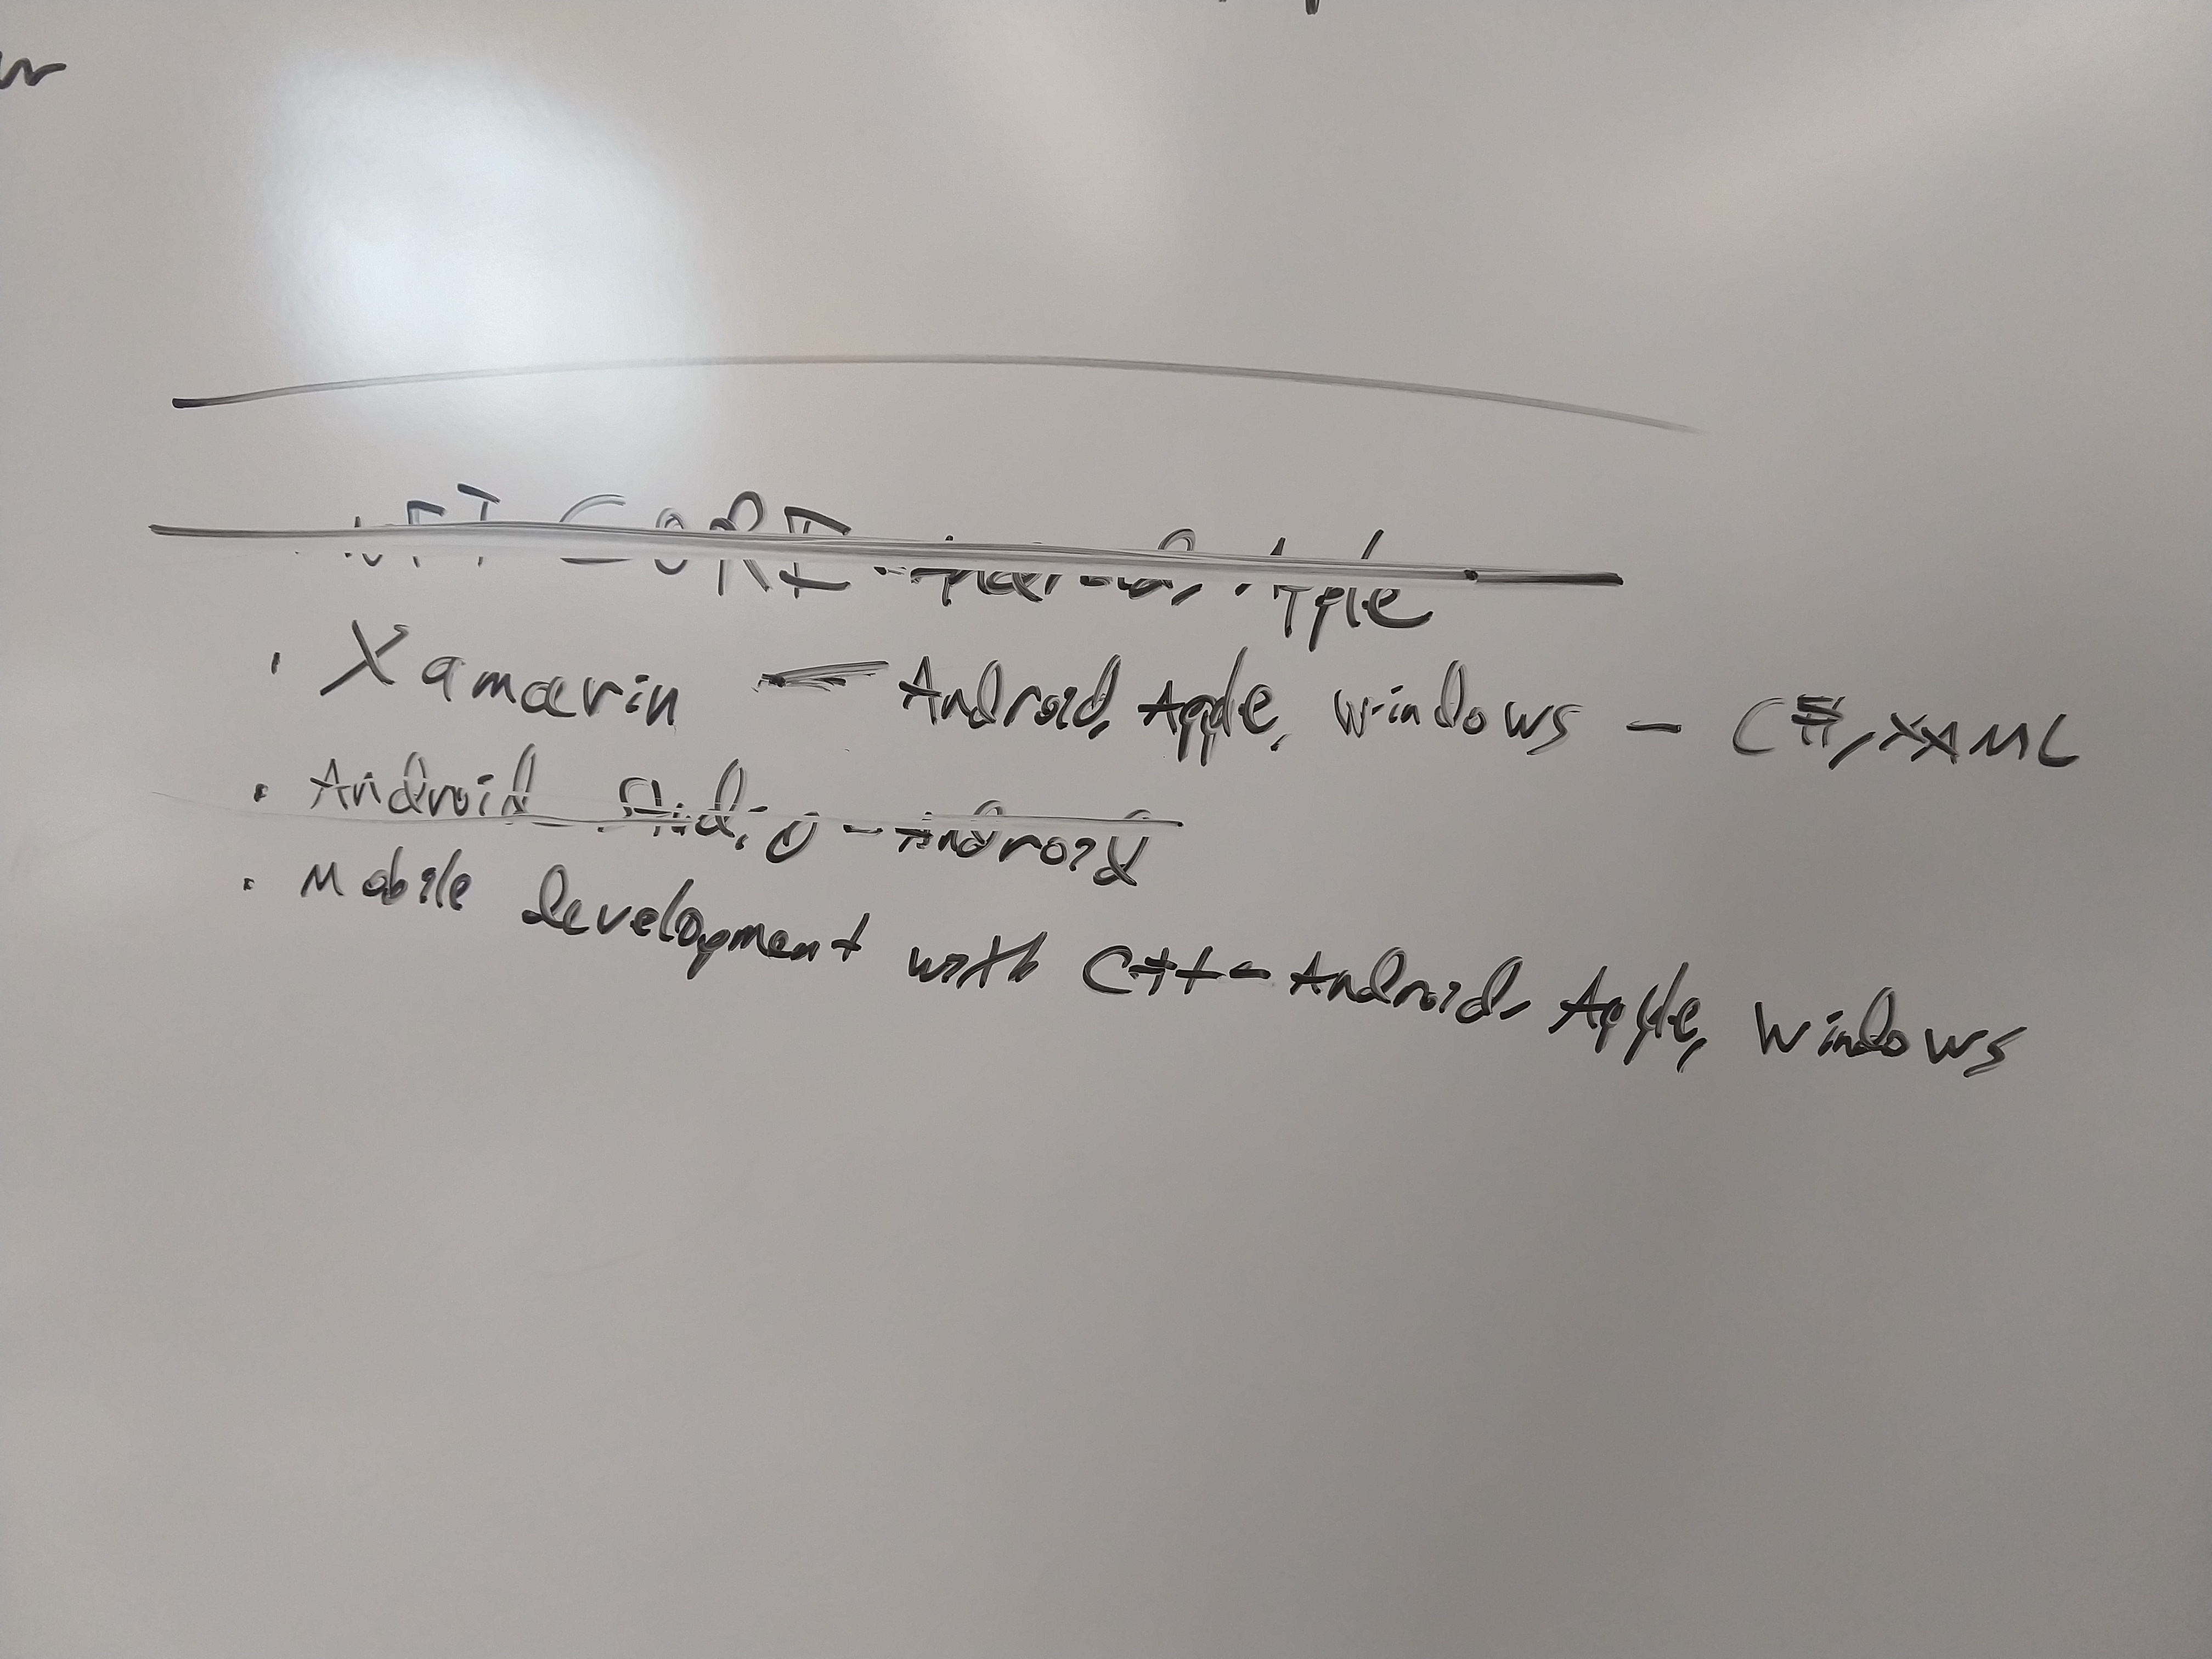 CORE - Android, Apple
. Xamarin - Android, Apple, Windows - C#, XAML
. Android Studio - Android
. Mobile development with C++ - Android, Apple, Windows